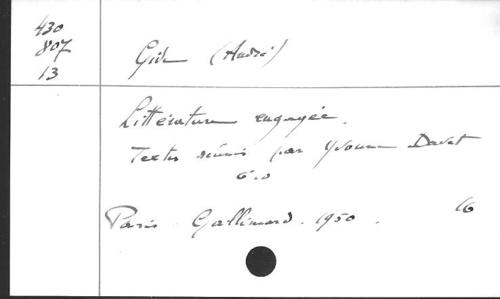 430
807
13
Gide (André)
Littérature engagée.
Textes réunis par Yvonne Davet
6.0
Paris. Gallimard. 1950.
16